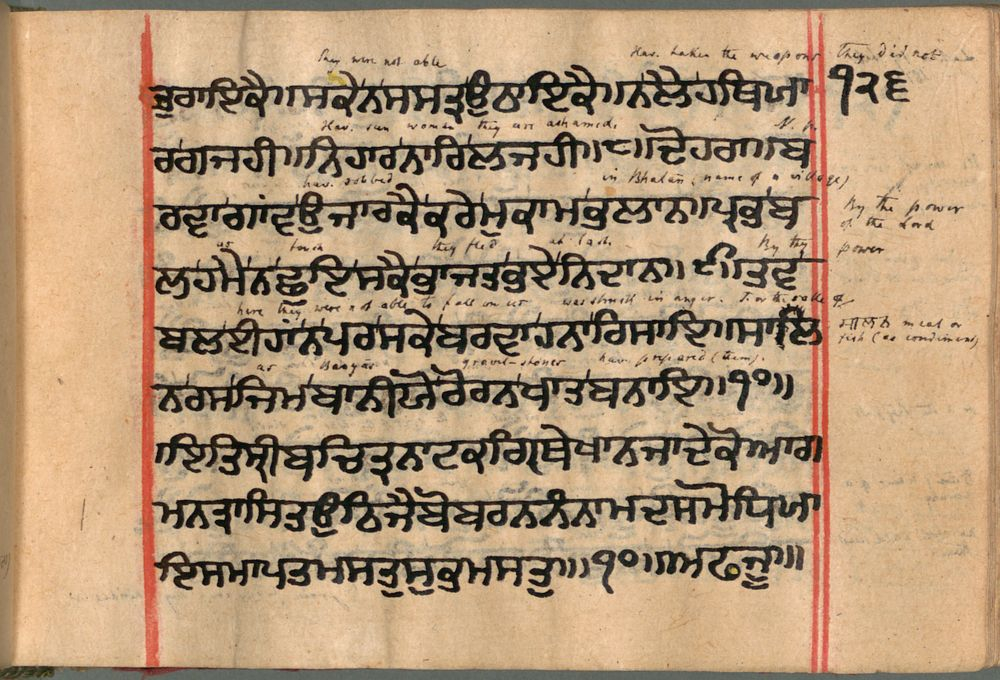 They were not able Hav. taken the weapons they did not
ਤੁਰਾਇਕੈ॥ਸਕੈਨਸਸਤ੍ਰਉਠਾਇਕੈ॥ਨਲੈਹਥਿਆ ੧੨੬
Hav. seen women they are ashamed.
ਰਗਜਹੀ॥ਨਿਹਾਰਨਾਰਿਲਜਹੀ॥੮॥ਦੋਹਰਾ॥ਬ
hav. robbed in Bhalan, name of a village)
ਰਵਾਗਾਂਵਉਜਾਰਕੈਕਰੇਮੁਕਾਮਭੁਲਾਨ॥ਪ੍ਰਭੁਬ By the power
of the Lord
as touch they fled at last. By thy power
ਲਹਮੈਨਛੁਇਸਕੈਭਾਜਤਭਏਨਿਦਾਨ॥੯॥ਤੁਵ
here they were not able to fall on us was struck in anger. for the sake of
ਬਲਈਹਾਂਨਪਰਸਕੇਬਰਵਾਹਨਾਰਿਸਾਇ॥ਸਾਲਿ ਸਾਲਨ meat or
fish (as condiment)
as Banyas gravel-stones have prepared (them).
ਨਰਸਜਿਮਬਾਨੀਯੋਰੋਰਨਖਾਤਬਨਾਇ॥੧੦॥
ਇਤਿਸ੍ਰੀਬਚਿਤ੍ਰਨਾਟਕਗ੍ਰਿੰਥੇਖਾਨਜਾਦੇਕੋਆਗ
ਮਨਤ੍ਰਾਸਿਤਉਠਿਜੈਬੋਬਰਨਨੰਨਾਮਦਸਮੋਧਿਆ
ਇਸਮਾਪਤਮਸਤੁਸੁਭਮਸਤੁ॥੧੦॥ਅਫਜੂ॥